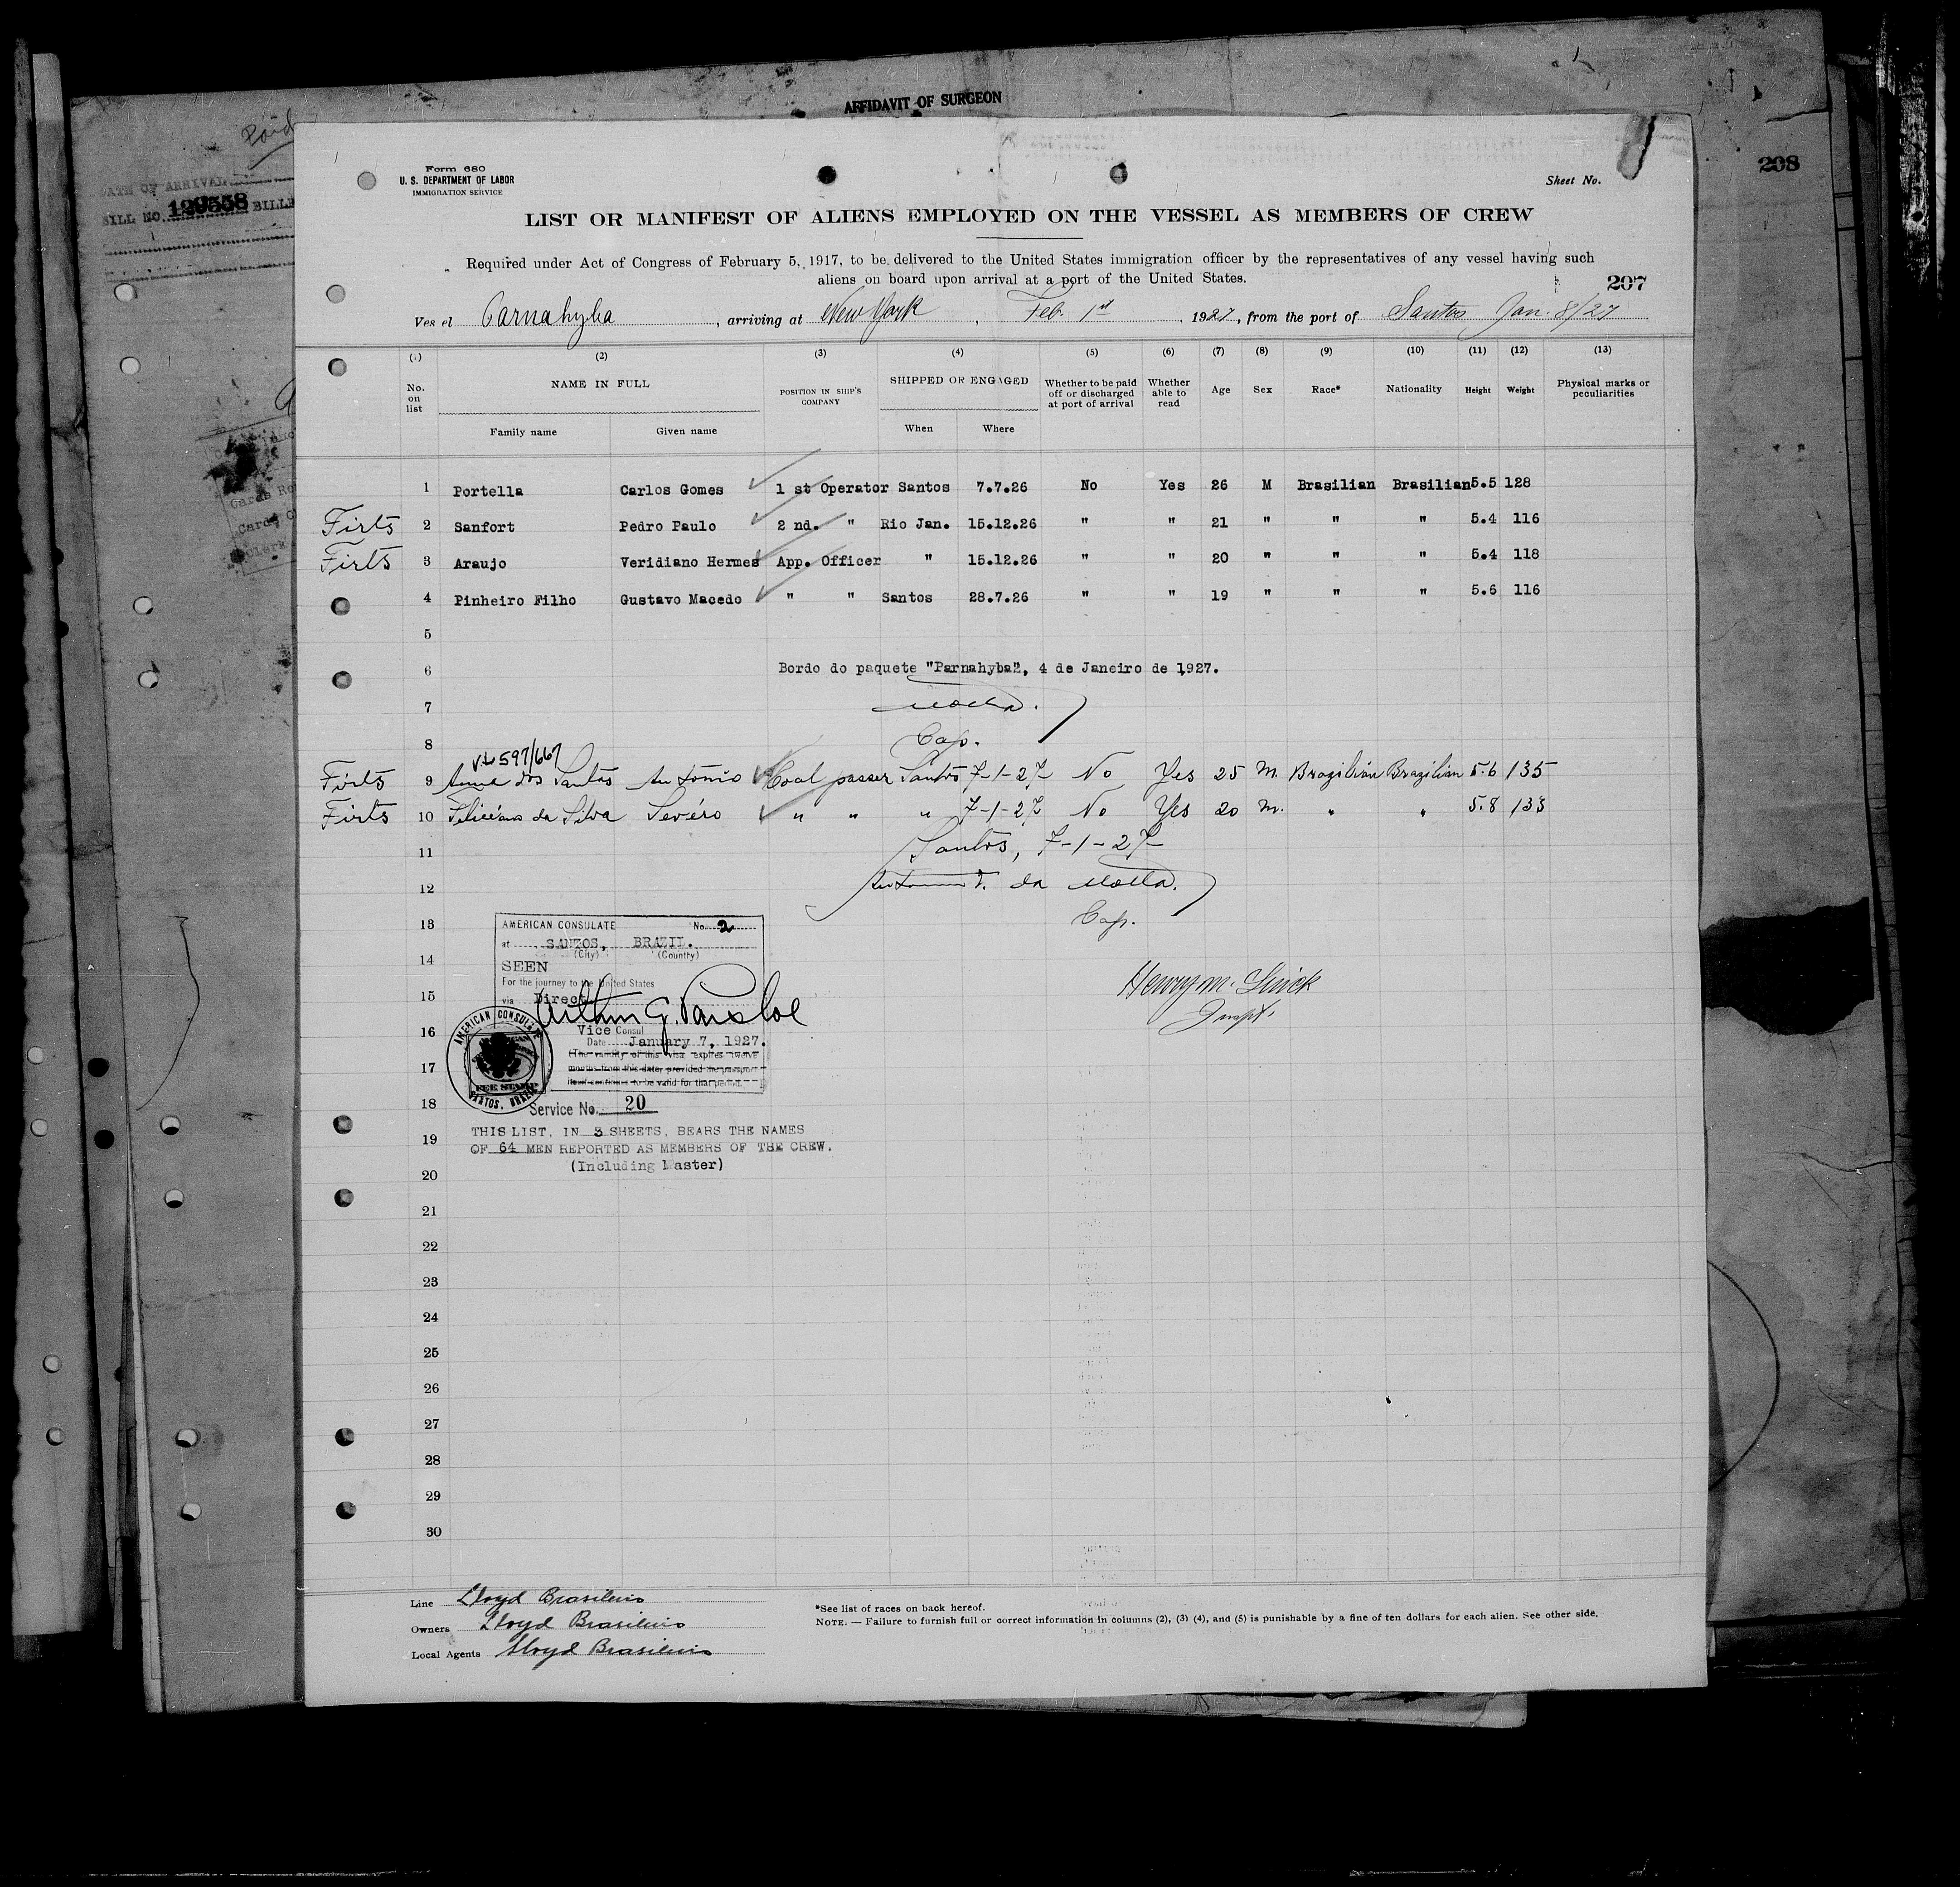 AFFIDAVIT OF SURGEON
Paid
DATE OF ARRIVAL
BILL NO. 129558 BILLE
208
Form 680
U. S. DEPARTMENT OF LABOR
IMMIGRATION SERVICE
Sheet No.
LIST OR MANIFEST OF ALIENS EMPLOYED ON THE VESSEL AS MEMBERS OF CREW
Required under Act of Congress of February 5, 1917, to be delivered to the United States immigration officer by the representatives of any vessel having such
aliens on board upon arrival at a port of the United States.
207
Ves el Parnahyba, arriving at New York, Feb. 1st, 1927, from the port of Santos Jan. 8/27
(1) (2) (3) (4) (5) (6) (7) (8) (9) (10) (11) (12) (13)
No. on list NAME IN FULL POSITION IN SHIP'S COMPANY SHIPPED OR ENGAGED Whether to be paid off or discharged at port of arrival Whether able to read Age Sex Race* Nationality Height Weight Physical marks or peculiarities
Family name Given name When Where
1 Portella Carlos Gomes 1 st Operator Santos 7.7.26 No Yes 26 M Brasilian Brasilian 5.5 128
Firts 2 Sanfort Pedro Paulo 2 nd. " Rio Jan. 15.12.26 " " 21 " " " 5.4 116
Firts 3 Araujo Veridiano Hermes App. Officer " 15.12.26 " " 20 " " " 5.4 118
4 Pinheiro Filho Gustavo Macedo " " Santos 28.7.26 " " 19 " " " 5.6 116
5
6 Bordo do paquete "Parnahyba", 4 de Janeiro de 1927.
7 Motta.
8 Cap.
597/667
Firts 9 dos Santos Antonio Coal passer Santos 7-1-27 No Yes 25 M. Brazilián Brazilián 5.6 135
Firts 10 Feliciano da Silva Sevéro " " " 7-1-27 No Yes 20 m. " " 5.8 133
11 Santos, 7-1-27
12 Antonio T. da Motta.
13 Cap.
AMERICAN CONSULATE No. 2
at SANTOS, BRAZIL.
(City) (Country)
14
SEEN
For the journey to the United States
Henry M.
15
via Direct
Arthur G. Parsloe
Inspt.
16
Vice Consul
Date January 7, 1927.
(The validity of this visa expires twelve
17
months from this date, provided the passport
itself continues to be valid for that period.)
AMERICAN CONSULATE
FEE STAMP
SANTOS, BRAZIL
18
Service No. 20
19
THIS LIST, IN 3 SHEETS, BEARS THE NAMES
OF 64 MEN REPORTED AS MEMBERS OF THE CREW.
(Including Master)
20
21
22
23
24
25
26
27
28
29
30
Line Lloyd Brasileiro
Owners Lloyd Brasileiro
Local Agents Lloyd Brasileiro
*See list of races on back hereof.
NOTE. — Failure to furnish full or correct information in columns (2), (3) (4), and (5) is punishable by a fine of ten dollars for each alien. See other side.